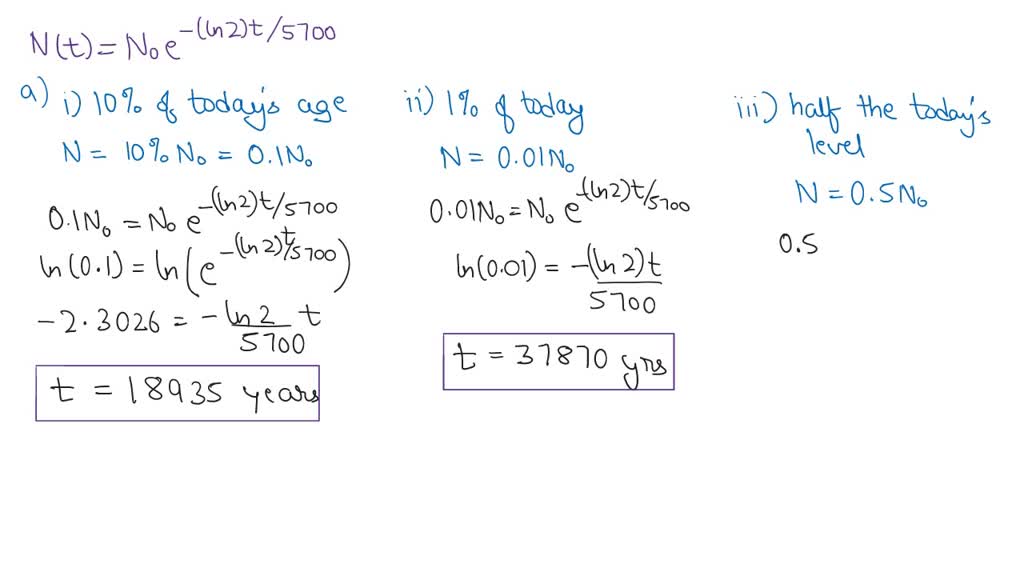 N(t) = N₀ e^{-(ln 2)t/5700}
a) i) 10% of today's age
N = 10% N₀ = 0.1N₀
0.1N₀ = N₀ e^{-(ln 2)t/5700}
ln(0.1) = ln(e^{-(ln 2)t/5700})
-2.3026 = -ln 2/5700 t
t = 18935 years
ii) 1% of today
N = 0.01N₀
0.01N₀ = N₀ e^{-(ln 2)t/5700}
ln(0.01) = -(ln 2)t/5700
t = 37870 yrs
iii) half the today's
level
N = 0.5N₀
0.5